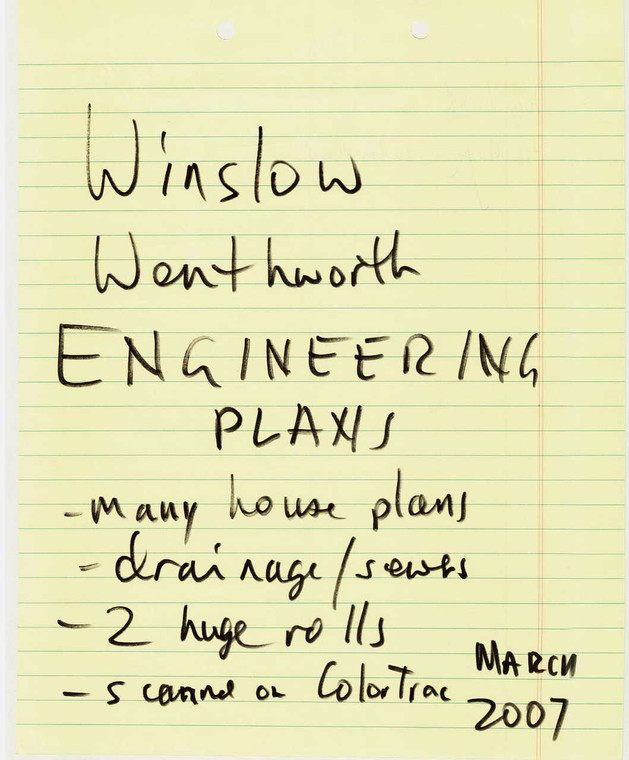 Winslow
Wenthworth
ENGINEERING
PLANS
- many house plans
- drainage/sewers
- 2 huge rolls
- scanned on ColorTrac
MARCH
2007